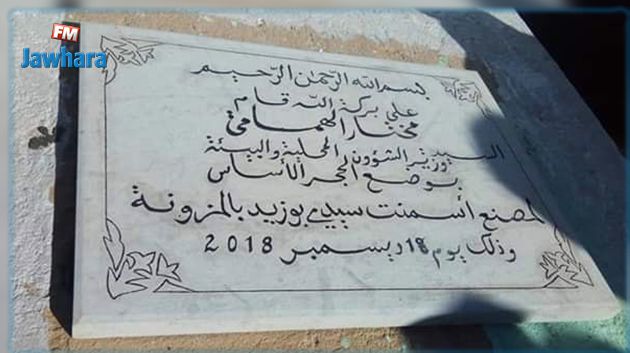 FM
Jawhara
بسم الله الرحمن الرحيم
على بركة الله قام
السيد مختار الهمامي
وزير الشؤون المحلية والبيئة
بوضع الحجر الأساس
لمصنع أسمنت سيدي بوزيد بالمزونة
وذلك يوم 18 ديسمبر 2018